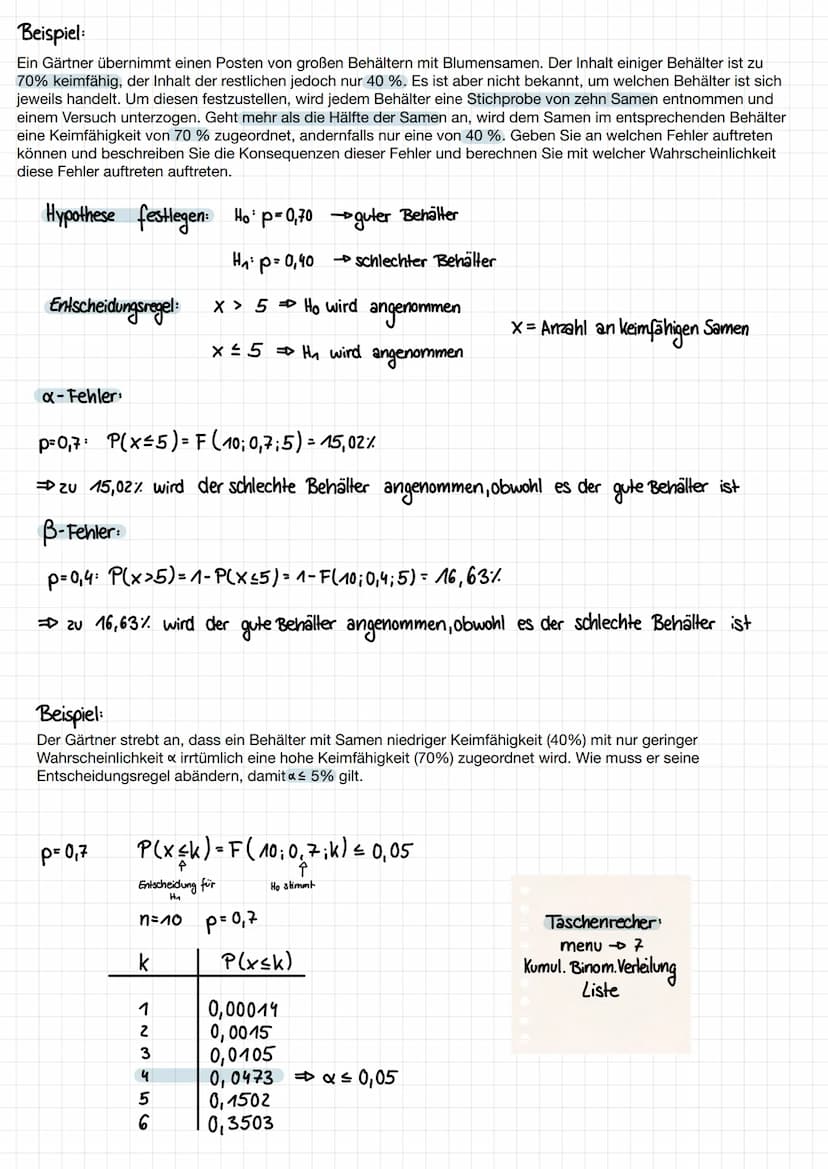 Beispiel:
Ein Gärtner übernimmt einen Posten von großen Behältern mit Blumensamen. Der Inhalt einiger Behälter ist zu
70% keimfähig, der Inhalt der restlichen jedoch nur 40 %. Es ist aber nicht bekannt, um welchen Behälter ist sich
jeweils handelt. Um diesen festzustellen, wird jedem Behälter eine Stichprobe von zehn Samen entnommen und
einem Versuch unterzogen. Geht mehr als die Hälfte der Samen an, wird dem Samen im entsprechenden Behälter
eine Keimfähigkeit von 70 % zugeordnet, andernfalls nur eine von 40 %. Geben Sie an welchen Fehler auftreten
können und beschreiben Sie die Konsequenzen dieser Fehler und berechnen Sie mit welcher Wahrscheinlichkeit
diese Fehler auftreten auftreten.
Hypothese festlegen: H₀: p=0,70 → guter Behälter
H₁: p=0,40 → schlechter Behälter
Entscheidungsregel: x > 5 ⇒ H₀ wird angenommen
x = Anzahl an keimfähigen Samen
x ≤ 5 ⇒ H₁ wird angenommen
α-Fehler:
p=0,7: P(x≤5) = F(10; 0,7; 5) = 15,02%
⇒ zu 15,02% wird der schlechte Behälter angenommen, obwohl es der gute Behälter ist
β-Fehler:
p=0,4: P(x>5) = 1-P(x≤5) = 1-F(10; 0,4; 5) = 16,63%
⇒ zu 16,63% wird der gute Behälter angenommen, obwohl es der schlechte Behälter ist
Beispiel:
Der Gärtner strebt an, dass ein Behälter mit Samen niedriger Keimfähigkeit (40%) mit nur geringer
Wahrscheinlichkeit α irrtümlich eine hohe Keimfähigkeit (70%) zugeordnet wird. Wie muss er seine
Entscheidungsregel abändern, damit α ≤ 5% gilt.
p=0,7 P(x≤k) = F(10; 0,7; k) ≤ 0,05
↑ ↑
Entscheidung für H₀ stimmt
H₁
n=10 p=0,7
k P(x≤k)
1 0,00014
2 0,0015
3 0,0105
4 0,0473 ⇒ α ≤ 0,05
5 0,1502
6 0,3503
Taschenrecher:
menu → 7
Kumul. Binom. Verteilung
Liste